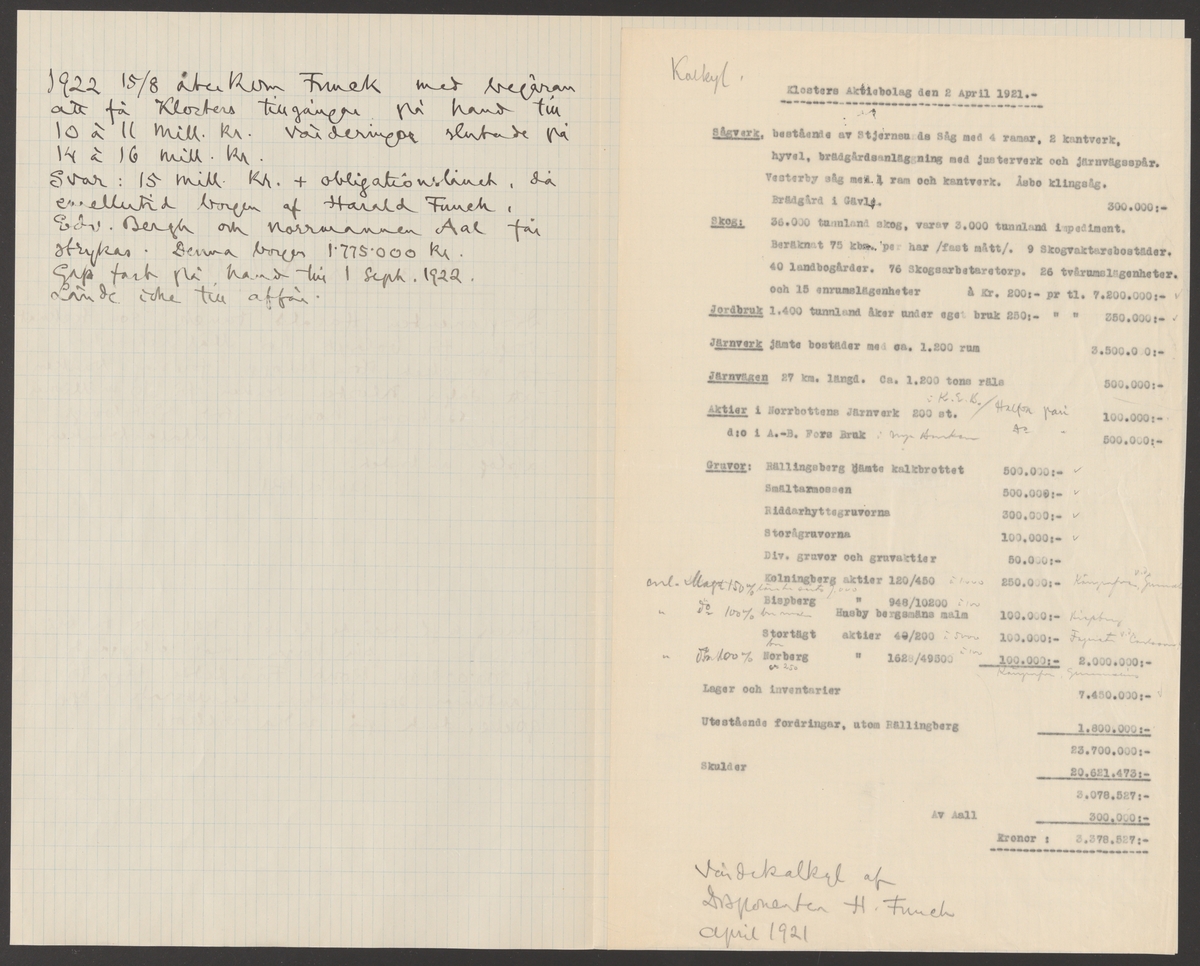 1922 15/8 återkom Funck med begäran
att få Klosters tillgångar på hand till
10 à 11 mill. kr. värderingar slutade på
14 à 16 mill. kr.
Svar: 15 mill. kr. + obligationslånet, då
emellertid borgen af Harald Funck,
Edv. Bergh och norrmannen Aal får
strykas. Denna borgen 1.775.000 kr.
Gafs fast på hand till 1 Sept. 1922.
Ledde icke till affär.
Kalkyl.
Klosters Aktiebolag den 2 April 1921.-
Sågverk, bestående av Stjernsunds Såg med 4 ramar, 2 kantverk,
hyvel, brädgårdsanläggning med justerverk och järnvägsspår.
Vesterby såg med 1 ram och kantverk. Åsbo klingsåg.
Brädgård i Gävle. 300.000:-
Skog: 36.000 tunnland skog, varav 3.000 tunnland impediment.
Beräknat 75 kbm. per har /fast mått/. 9 Skogvaktarebostäder.
40 landbogårder. 76 Skogsarbetaretorp. 26 tvårumslägenheter.
och 15 enrumslägenheter à Kr. 200:- pr tl. 7.200.000:-
Jordbruk 1.400 tunnland åker under eget bruk 250:- " " 350.000:-
Järnverk jämte bostäder med ca. 1.200 rum 3.500.000:-
Järnvägen 27 km. längd. Ca. 1.200 tons räls 500.000:-
Aktier i Norrbottens Järnverk 200 st. 100.000:-
d:o i A.-B. Fors Bruk 500.000:-
Gruvor: Rällingsberg jämte kalkbrottet 500.000:-
Smältarmossen 500.000:-
Riddarhyttegruvorna 300.000:-
Storågruvorna 100.000:-
Div. gruvor och gruvaktier 50.000:-
Kolningberg aktier 120/450 250.000:-
Bispberg " 948/10200
" do 100% Husby bergsmäns malm 100.000:- Bispberg
Stortägt aktier 40/200 100.000:-
" 100% Norberg " 1628/49500 100.000:- 2.000.000:-
Lager och inventarier 7.450.000:-
Utestående fordringar, utom Rällingberg 1.800.000:-
23.700.000:-
Skulder 20.621.473:-
3.078.527:-
Av Aall 300.000:-
Kronor: 3.378.527:-
Värdekalkyl af
Disponenten H. Funck
april 1921